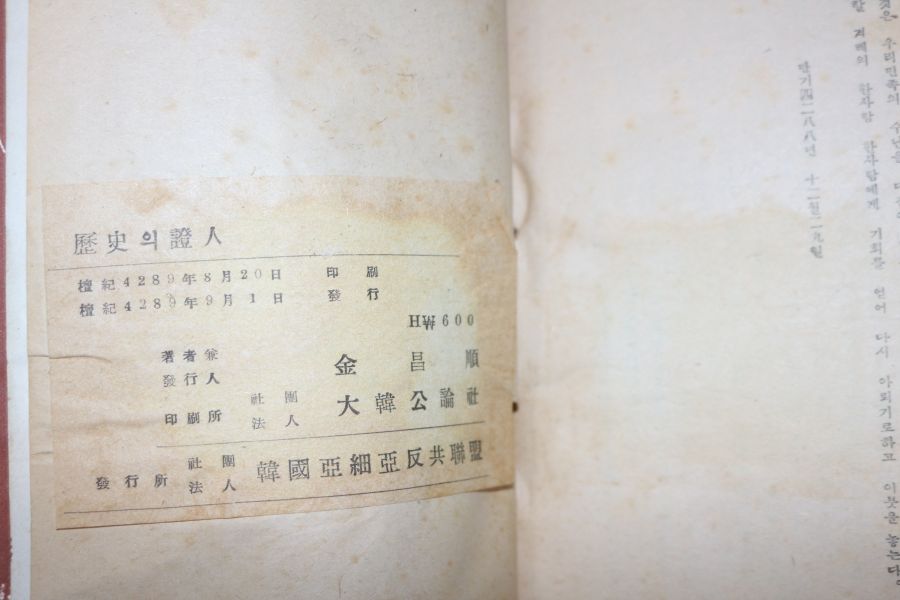 歷史의 證人
檀紀4289年8月20日 印刷
檀紀4289年9月1日 發行
600
著者兼
發行人 金昌順
印刷所 社團法人 大韓公論社
發行所 社團法人 韓國亞細亞反共聯盟
겨레의 한사람 한사람에게 기회를 얻어 다시 아뢰기로하고 이붓을 놓는다.
단기四二八八년 十二월二九일